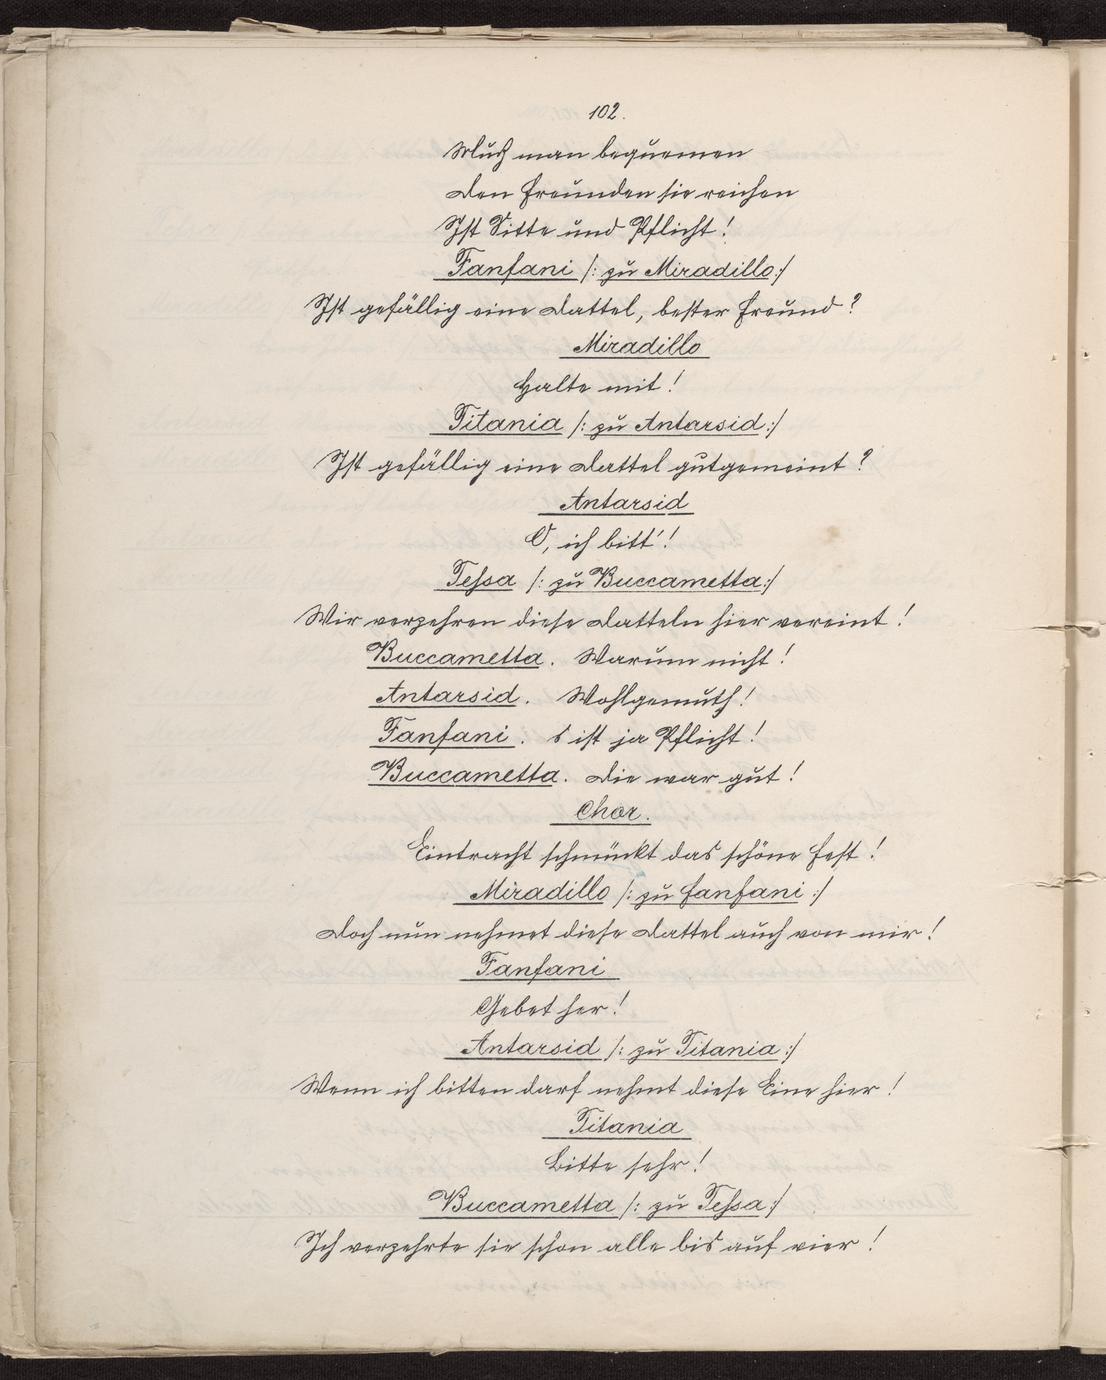 102.
Muß man bequemen
Den Freunden sie reichen
Ist Sitte und Pflicht!
Fanfani /: zu Miradillo:/
Ist gefällig eine Dattel, bester Freund?
Miradillo
Halte mit!
Titania /: zu Antarsid:/
Ist gefällig eine Dattel gutgemeint?
Antarsid
O, ich bitt'!
Tessa /: zu Buccametta:/
Wir verzehren diese Datteln hier vereint!
Buccametta. Warum nicht!
Antarsid. Wohlgemuth!
Fanfani. s ist ja Pflicht!
Buccametta. Die war gut!
Chor.
Eintracht schmückt das schöne Fest!
Miradillo /: zu Fanfani:/
Doch nun nehmet diese Dattel auch von mir!
Fanfani
Gebet her!
Antarsid /: zu Titania:/
Wenn ich bitten darf nehmt diese Eine hier!
Titania
Bitte sehr!
Buccametta /: zu Tessa:/
Ich verzehrte sie schon alle bis auf vier!